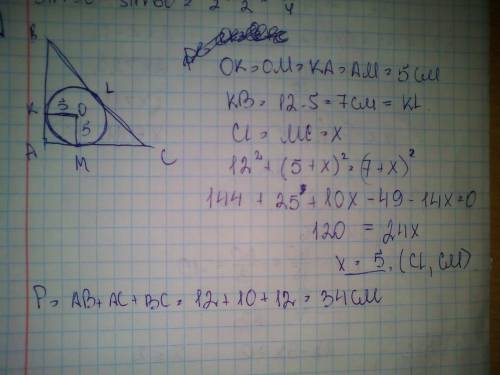 B
K 5 O L
5
A
M
C
OK = OM = KA = AM = 5 см
KB = 12 - 5 = 7 см = KL
CL = MC = x
12² + (5 + x)² = (7 + x)²
144 + 25 + 10x - 49 - 14x = 0
120 = 24x
x = 5. (CL, CM)
P = AB + AC + BC = 12 + 10 + 12 = 34 см